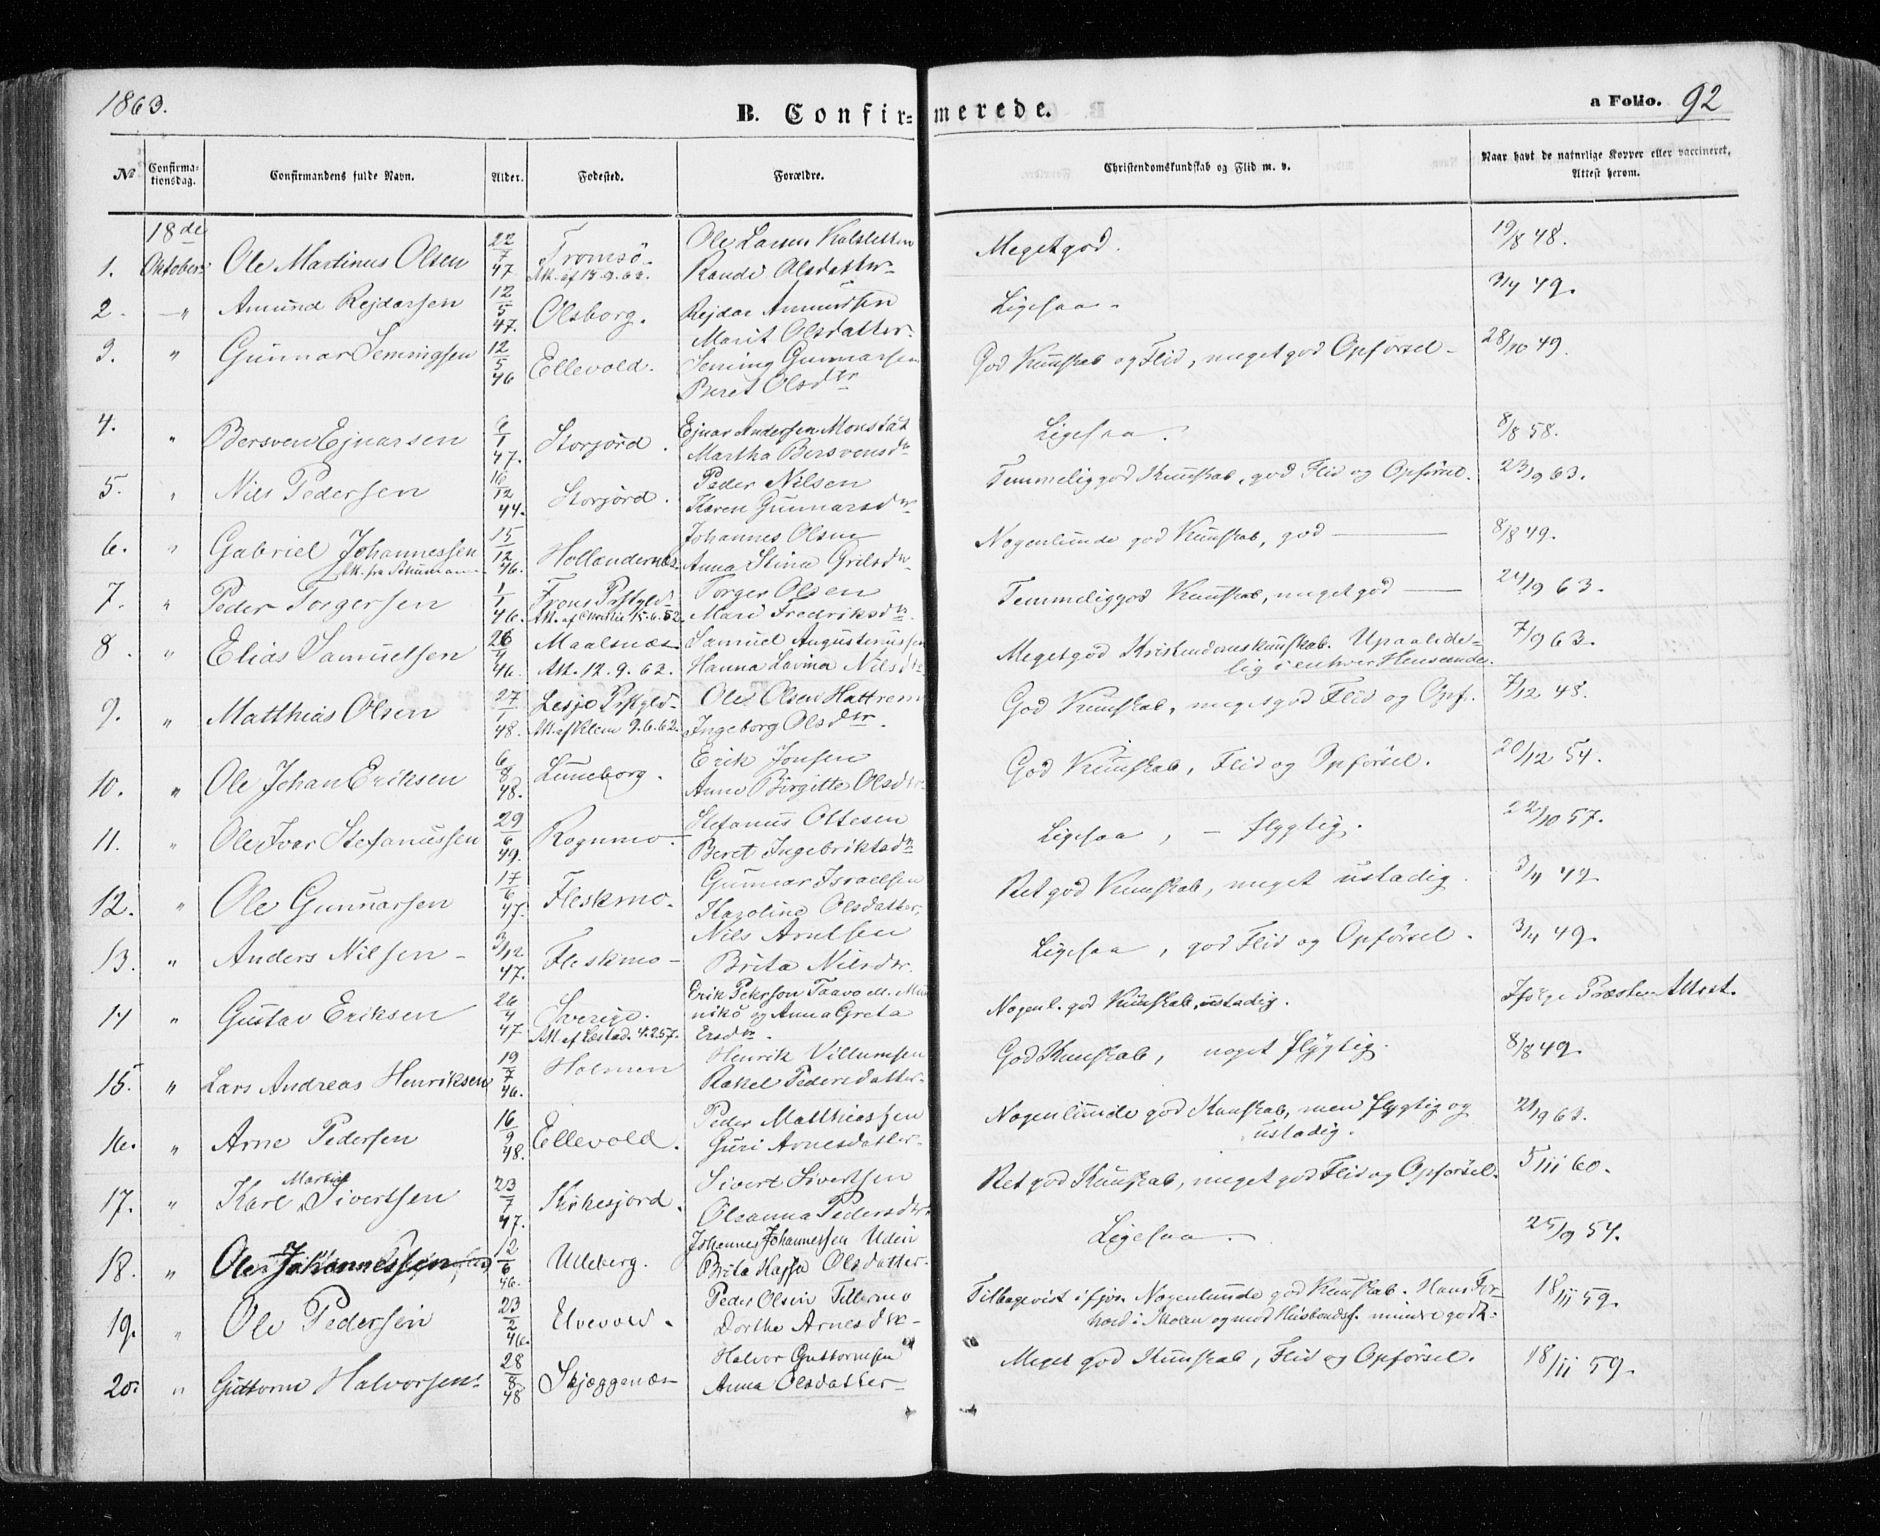 1863.
B. Confirmerede.
a Folio. 92
No
Confirmationsdag.
Confirmandens fulde Navn.
Alder.
Fødested.
Forældre.
Christendomskundskab og Flid m. v.
Naar havt de naturlige Kopper eller vaccineret, Attest herom.
1. 18de Oktober Ole Martinus Olsen 22/7 47 Tromsö. Ole Larsen Randi Olsdatter Megetgod. 19/8 48.
2. " Amund Rejdarsen 12/5 47. Olsborg. Rejdar Amundsen Marit Olsdatter. Ligesaa. 3/4 49.
3. " Gunnar Semmingsen 12/5 46 Ellevold. Seming Gunnarsen Beret Olsdtr God Kunskab og Flid, meget god Opførsel 28/10 49.
4. " Bersven Ejnarsen 6/1 47. Storjörd. Ejnar Andersen Monstad Martha Bersvensdtr Ligesaa. 8/8 58.
5. " Nils Pedersen 16/12 44. Storjörd. Peder Nilsen Karen Gunnarsdtr Temmelig god Kunskab, god Flid og Opførsel. 23/9 63.
6. " Gabriel Johannessen 15/12 46. Hollendernæs Johannes Olsen Anna Stina Nogenlunde god Kunskab, god — 8/8 49.
7. " Peder Torgersen 1/1 46. Frons Prstgld. Torger Olsen Mari Fredriksdtr. Temmelig god Kunskab, meget god — 24/9 63.
8. " Elias Samuelsen 26/4 46. Maalsnæs Att. 12.9.62. Samuel Augustinussen Hanna Lavina Nilsdtr Meget god Kristendomskunskab. Upaalidelig i enhver Henseende. 7/9 63.
9. " Matthias Olsen 27/1 48. Lesje Prstgld. Att. af Klem 9.6.62. Ole Olsen Hattrem Ingeborg Olsdtr. God Kunskab, meget god Flid og Opf. 7/12 48.
10. " Ole Johan Eriksen 6/8 48. Luneborg. Erik Jonsen Anne Birgitte Olsdtr. God Kunskab, Flid og Opførsel. 20/12 54.
11. " Ole Ivar Stefanussen 29/6 49. Rognmo. Stefanus Ottesen Beret Ingebriktsdtr Ligesaa, — flygtig. 22/10 57.
12. " Ole Gunnarsen 17/6 47. Fleskmo. Gunnar Israelsen Karoline Olsdatter. Ret god Kunskab, meget ustadig. 3/4 49
13. " Anders Nilsen 3/12 47. Fleskmo Nils Arntsen Brita Nilsdtr. Ligesaa, god Flid og Opførsel. 3/4 49.
14 " Gustav Eriksen 26/4 47 Sverige. Erik Pekrson Taavo og Anna Greta Ersdtr. Nogenl. god Kunskab, ustadig. Ifølge Præstens Attest.
15. " Lars Andreas Henriksen 19/7 46. Holmen Henrik Villumsen Rakel Pedersdatter God Kunskab, noget flygtig. 8/8 49.
16. " Arne Pedersen 16/9 48. Ellevold. Peder Matthiassen Guri Arnesdatter Nogenlunde god Kunskab, men flygtig og ustadig. 21/9 63.
17. " Karl Martin Sivertsen 23/7 47. Kirkesjord. Sivert Sivertsen Oleanna Pedersdtr. Ret god Kunskab, meget god Flid og Opførsel. 5/11 60.
18. " Ole Johannessen 12/6 46. Uleberg. Johannes Johannessen Uden Brita Olsdatter Ligesaa. 25/9 54.
19. " Ole Pedersen 23/2 46. Elvevold. Peder Olsen Tillermo Dorthe Arnesdtr Tilbagevist ifjor. Nogenlunde god Kunskab. Hans Forhold i Skolen og mod Husbondsf. mindre godt. 18/11 59.
20. " Guttorm Halvorsen. 28/8 48 Skjæggenæs Halvor Guttormsen Anna Olsdatter Meget god Kunskab, Flid og Opførsel. 18/11 59.